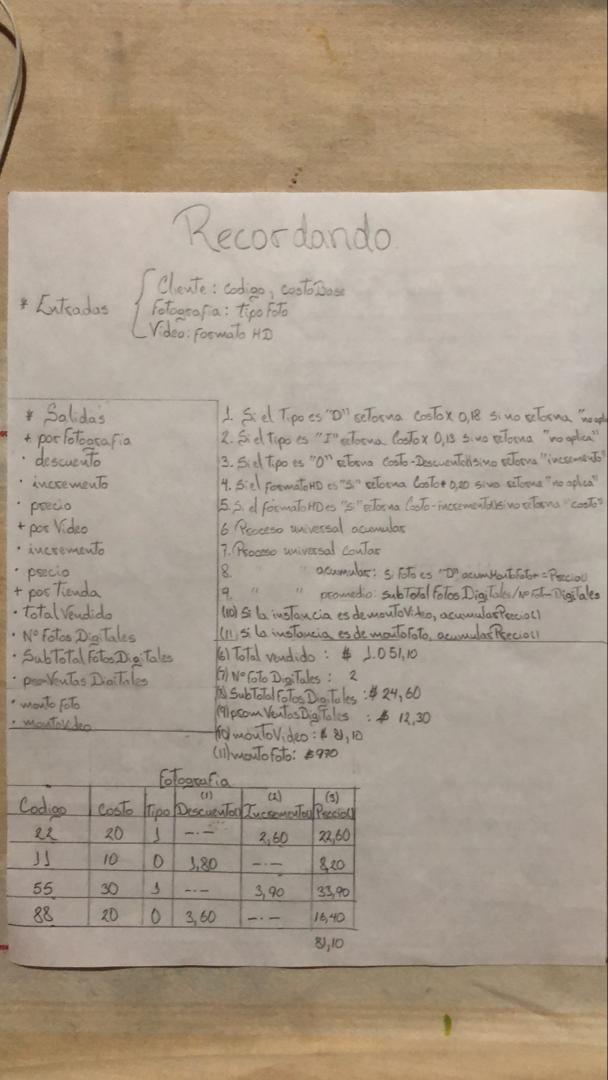 Recordando
* Entradas
Cliente: codigo, costoBase
Fotografia: tipoFoto
Video: formato HD
* Salidas
+ por Fotografia
· descuento
· incremento
· precio
+ por Video
· incremento
· precio
+ por Tienda
· Total Vendido
· Nº Fotos Digitales
· SubTotal Fotos Digitales
· promVentas Digitales
· monto foto
· montovideo
1. Si el Tipo es "D" retorna Costo x 0,18 sino retorna "no apli
2. Si el Tipo es "I" retorna Costo x 0,13 sino retorna "no aplica"
3. Si el tipo es "D" retorna Costo-Descuento() sino retorna "incremento"
4. Si el formatoHD es "S" retorna Costo * 0,20 sino retorna "no aplica"
5. Si el formatoHD es "S" retorna Costo-incremento() sino retorna "costo"
6. Proceso universal acumular
7. Proceso universal contar
8. " " acumular: si foto es "D" acumMontoFoto+=Precio()
9. " " promedio: subTotal Fotos Digitales/Nº Fot-Digitales
(10) Si la instancia es de montoVideo, acumularPrecio()
(11) si la instancia es de montoFoto, acumularPrecio()
(6) Total vendido : $ 1.051,10
(7) Nº Foto Digitales : 2
(8) SubTotal Fotos Digitales : $ 24,60
(9) prom Ventas Digitales : $ 12,30
(10) montoVideo : $ 81,10
(11) montoFoto: $970
Fotografia
Codigo Costo Tipo (1) Descuento() (2) Incremento() (3) Precio()
22 20 1 -·- 2,60 22,60
11 10 0 1,80 -·- 8,20
55 30 1 -·- 3,90 33,90
88 20 0 3,60 -·- 16,40
81,10